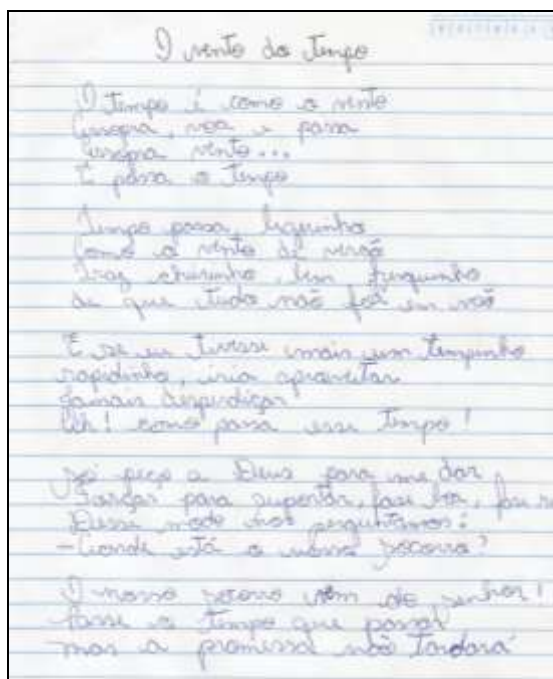 O vento do Tempo
O Tempo é como o vento
Assopra, voa e passa
Assopra vento...
E passa o Tempo
Tempo passa ligeirinho
Como o vento de verão
Traz cheirinho bem fresquinho
de que tudo não foi em vão
E se eu tivesse mais um tempinho
rapidinho, iria aproveitar
Jamais desperdiçar
Ah! como passa esse Tempo!
Só peço a Deus para me dar
forças para suportar,
Desse modo nos perguntamos:
- Aonde está o nosso socorro?
O nosso socorro vem do senhor!
Passe o Tempo que passar
mas a promessa não Tardará